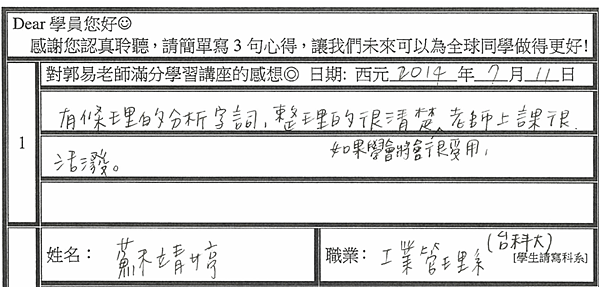 Dear 學員您好☺
感謝您認真聆聽，請簡單寫 3 句心得，讓我們未來可以為全球同學做得更好!
1
對郭易老師滿分學習講座的感想◎ 日期: 西元 2014 年 7 月 11 日
有條理的分析字詞，整理的很清楚，如果學會將會很受用，老師上課很
活潑。
姓名： 蕭靖婷
職業： 工業管理系 (台科大)
[學生請寫科系]